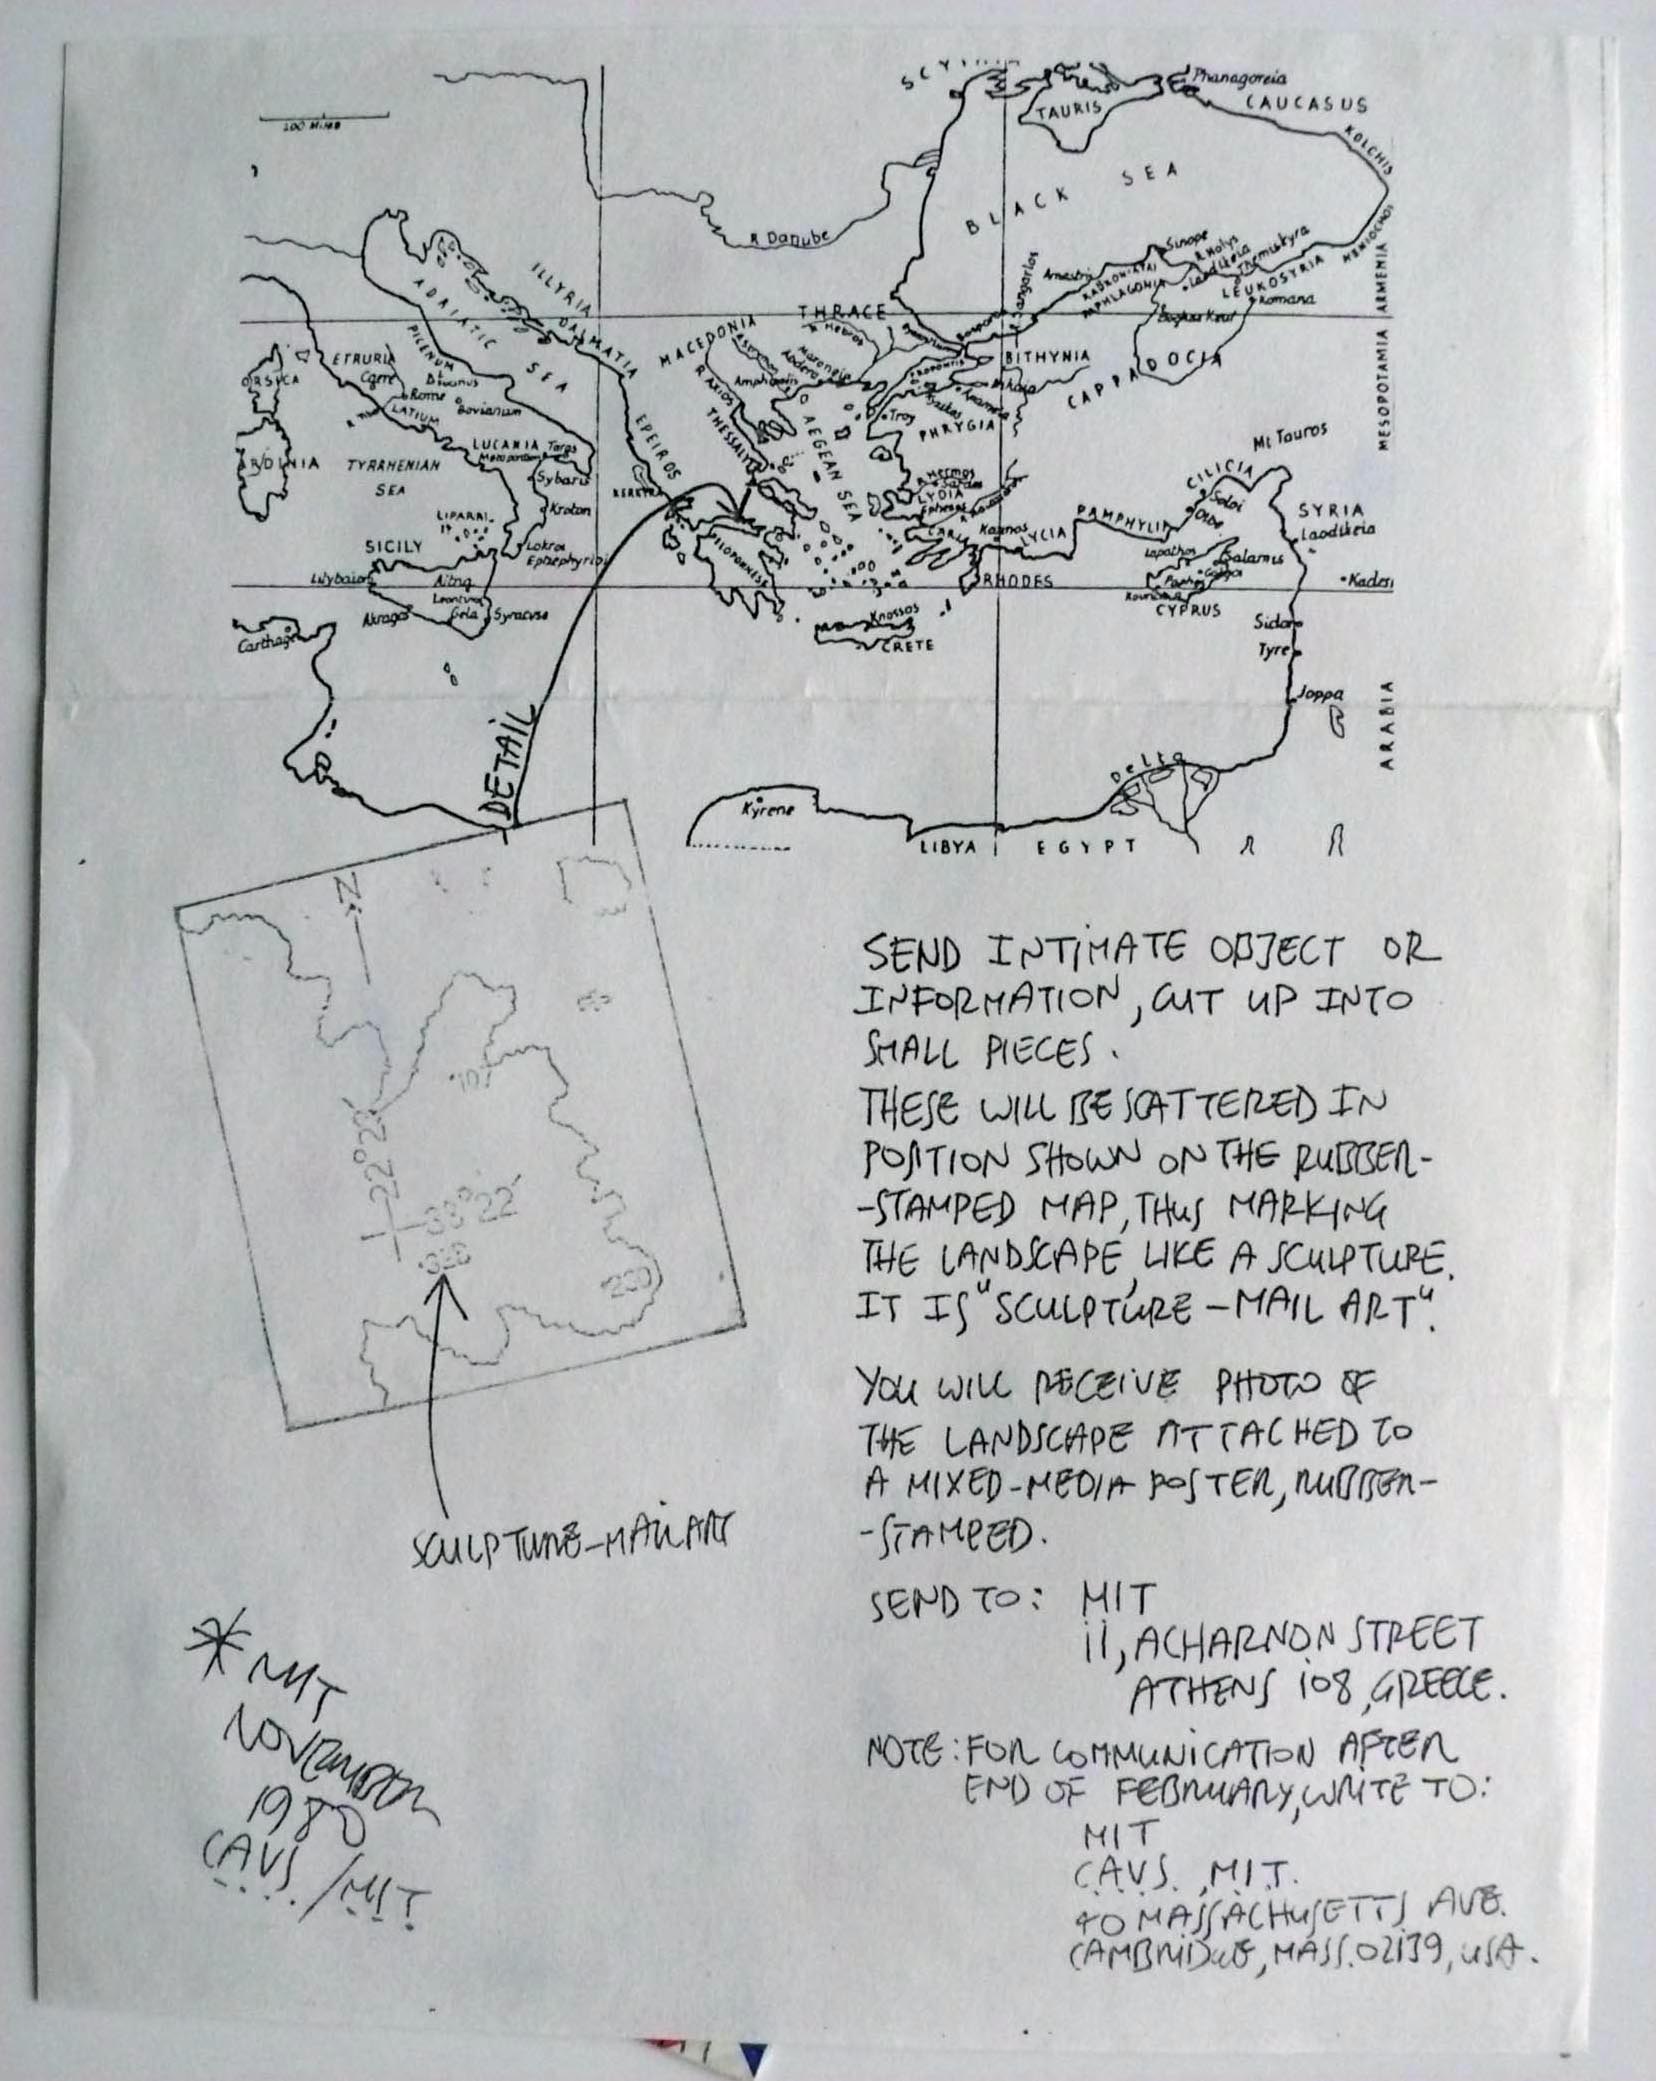 TAURIS
Phanagoreia
CAUCASUS
KOLCHIS
BLACK SEA
R Danube
ILLYRIA
DALMATIA
ADRIATIC SEA
PICENUM
THRACE
R Hebros
MACEDONIA
R AXIOS
Amphipolis
Maroneia
Abdera
Sinope
R Halys
Themiskyra
Amastris
LEUKOSYRIA
Komana
ARMENIA
MESOPOTAMIA
BITHYNIA
CAPPADOCIA
ETRURIA
Rome
LATIUM
Bovianum
EPEIROS
THESSALY
AEGEAN SEA
Troy
PHRYGIA
TYRRHENIAN
SEA
LUCANIA
Taras
Sybaris
Kroton
LIPARAI
SICILY
Lokroi
Epizephyrioi
KERKYRA
R Hermos
LYDIA
CARIA
Kaunos
LYCIA
PAMPHYLIA
CILICIA
Mt Tauros
Soloi
SYRIA
Laodikeia
Lapathos
Salamis
CYPRUS
Kades
Lilybaion
Aitna
Leontinoi
Akragas
Gela
Syracuse
PELOPONNESE
RHODES
Knossos
CRETE
Carthage
Sidon
Tyre
Joppa
ARABIA
Delta
Kyrene
LIBYA
EGYPT
DETAIL
N
22°20'
38°22'
SEND INTIMATE OBJECT OR
INFORMATION, CUT UP INTO
SMALL PIECES.
THESE WILL BE SCATTERED IN
POSITION SHOWN ON THE RUBBER-
-STAMPED MAP, THUS MARKING
THE LANDSCAPE, LIKE A SCULPTURE.
IT IS "SCULPTURE - MAIL ART".
YOU WILL RECEIVE PHOTO OF
THE LANDSCAPE ATTACHED TO
A MIXED-MEDIA POSTER, RUBBER-
-STAMPED.
SCULPTURE-MAIL ART
SEND TO: MIT
11, ACHARNON STREET
ATHENS 108, GREECE.
NOTE: FOR COMMUNICATION AFTER
END OF FEBRUARY, WRITE TO:
MIT
C.A.V.S., M.I.T.
40 MASSACHUSETTS AVE.
CAMBRIDGE, MASS. 02139, USA.
* MIT
NOVEMBER
1980
C.A.V.S. / M.I.T